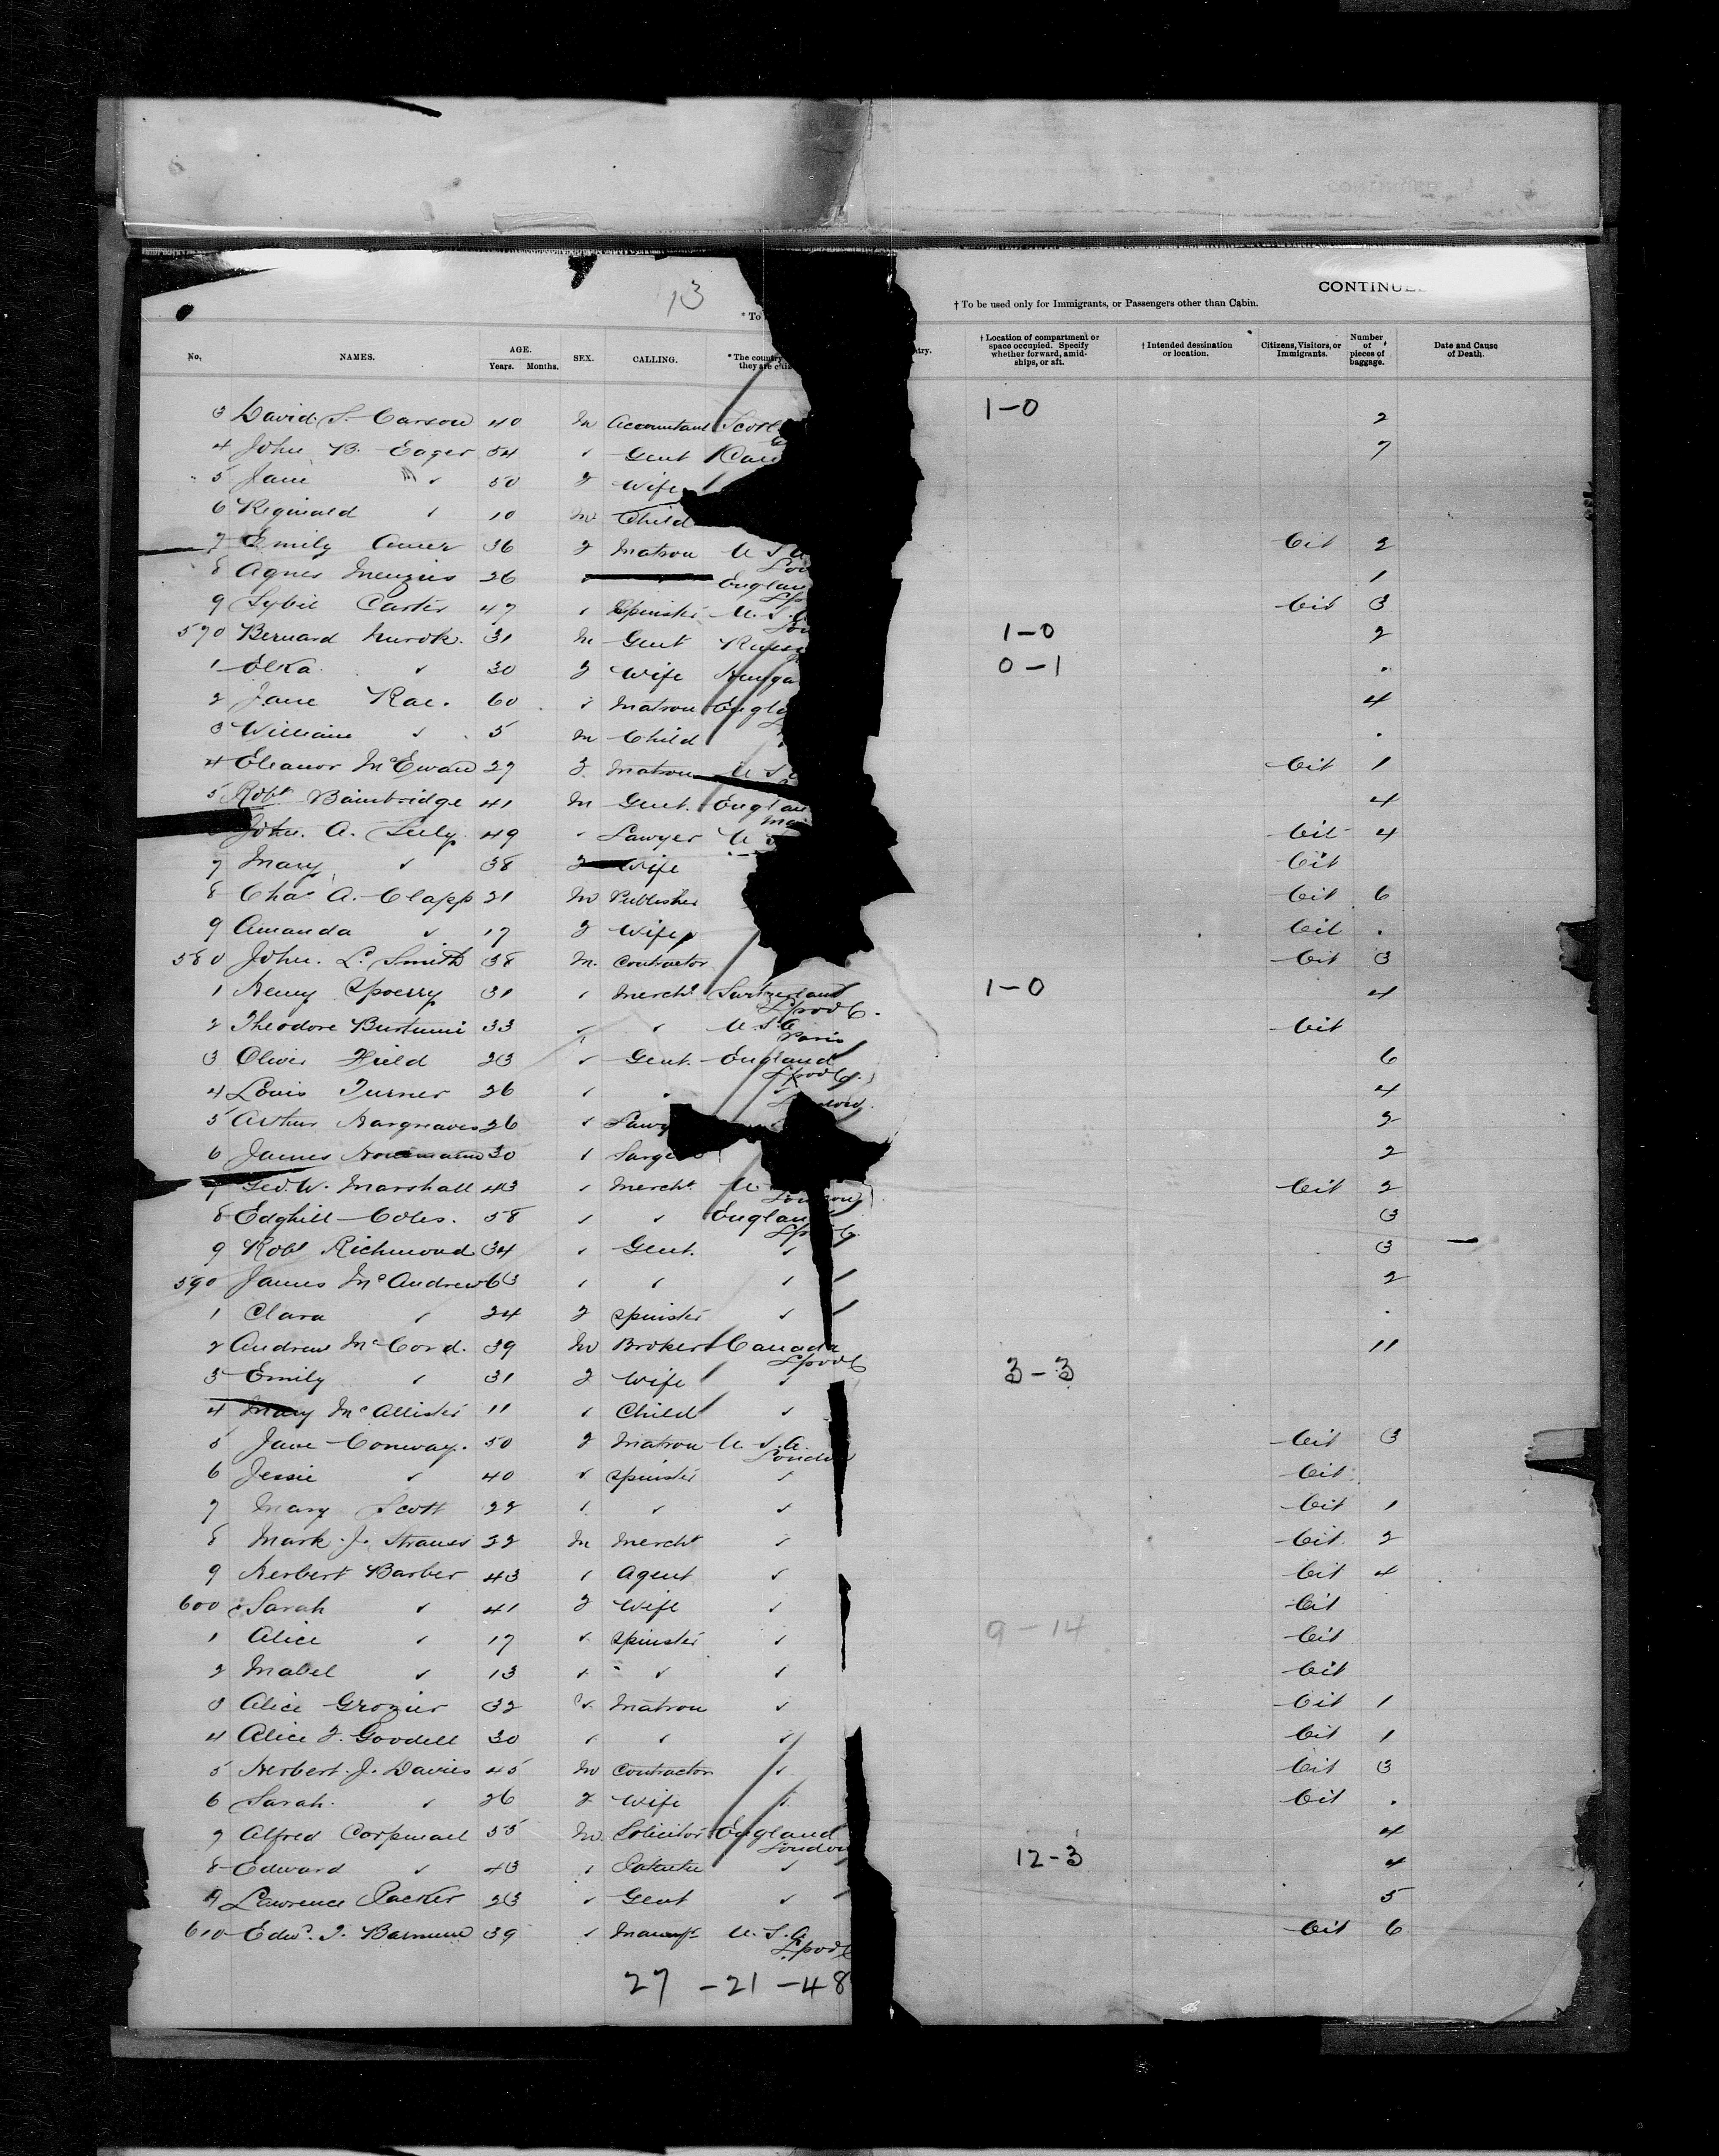 13
CONTINUE
* To
† To be used only for Immigrants, or Passengers other than Cabin.
No. NAMES. AGE. Years. Months. SEX. CALLING. * The country they are citi try. † Location of compartment or space occupied. Specify whether forward, amidships, or aft. † Intended destination or location. Citizens, Visitors, or Immigrants. Number of pieces of baggage. Date and Cause of Death.
3 David S. Carson 40 M Accountant Scotl 1-0 2
4 John B. Eager 54 ✓ Gent 7
5 Jane ✓ 50 F Wife
6 Reginald ✓ 10 M Child
7 Emily 36 F Matron U S A Cit 2
8 Agnes Menzies 26 ✓ Englan 1
9 Sybil Carter 47 ✓ Spinster U.S. Cit 3
570 Bernard Nurok. 31 M Gent Russ 1-0 2
1 Elka ✓ 30 F Wife Hunga 0-1 .
2 Jane Rae. 60 ✓ Matron Engla 4
3 William ✓ 5 M Child .
4 Eleanor McEwan 27 F. Matron U S Cit 1
5 Robt Bainbridge 41 M Gent. Englan 4
John. A. Seely. 49 ✓ Lawyer U S Cit 4
7 Mary ✓ 38 F Wife Cit
8 Chas A. Clapp 21 M Publisher Cit 6
9 Amanda ✓ 17 F Wife Cit .
580 John. L. Smith 38 M. Contractor Cit 3
1 Henry Spoerry 31 ✓ Mercht Switzerland 1-0 4
L'pool
2 Theodore 33 ✓ ✓ U.S.A Cit
Paris
3 Oliver Field 23 ✓ Gent. England 6
L'pool
4 Louis Turner 26 ✓ ✓ 4
5 Arthur Hargreaves 26 ✓ Lawy 2
6 James 30 ✓ 2
7 Geo. W. Marshall 43 ✓ Mercht U. Cit 2
8 Edghill Coles. 58 ✓ ✓ Englan 3
9 Robt Richmond 34 ✓ Gent. ✓ 3
590 James McAndrew 63 ✓ ✓ ✓ 2
1 Clara ✓ 24 F Spinster ✓ .
2 Andrew McCord. 39 M Broker Canada 11
L'pool
3 Emily ✓ 31 F Wife ✓ 3-3
4 Mary McAllister 11 ✓ Child ✓
5 Jane Conway. 50 F Matron U.S.A. Cit 3
London
6 Jessie ✓ 40 ✓ Spinster ✓ Cit
7 Mary Scott 22 ✓ ✓ ✓ Cit 1
8 Mark J. Strauss 22 M Mercht ✓ Cit 2
9 Herbert Barber 43 ✓ Agent ✓ Cit 4
600 Sarah ✓ 41 F Wife ✓ Cit
1 Alice ✓ 17 ✓ Spinster ✓ 9-14 Cit
2 Mabel ✓ 13 ✓ ✓ ✓ Cit
3 Alice Grozier 32 ✓ Matron ✓ Cit 1
4 Alice F. Goodell 30 ✓ ✓ ✓ Cit 1
5 Herbert J. Davies 45 M Contractor ✓ Cit 3
6 Sarah. ✓ 26 F Wife ✓ Cit .
7 Alfred Corpmael 55 M. Solicitor England 4
London
8 Edward ✓ 43 ✓ ✓ 12-3 4
9 Lawrence Packer 23 ✓ Gent ✓ 5
610 Edwd. T. Barnum 39 ✓ U.S.A Cit 6
L'pool
27 - 21 - 48